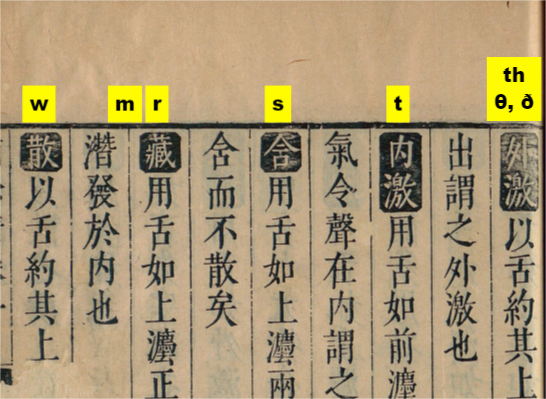 w m r s t th
θ, ð
外激以舌約其上
出謂之外激也
内激用舌如前灋
氣令聲在内謂之
含用舌如上灋兩
含而不散矣
藏用舌如上灋正
濳發於内也
散以舌約其上